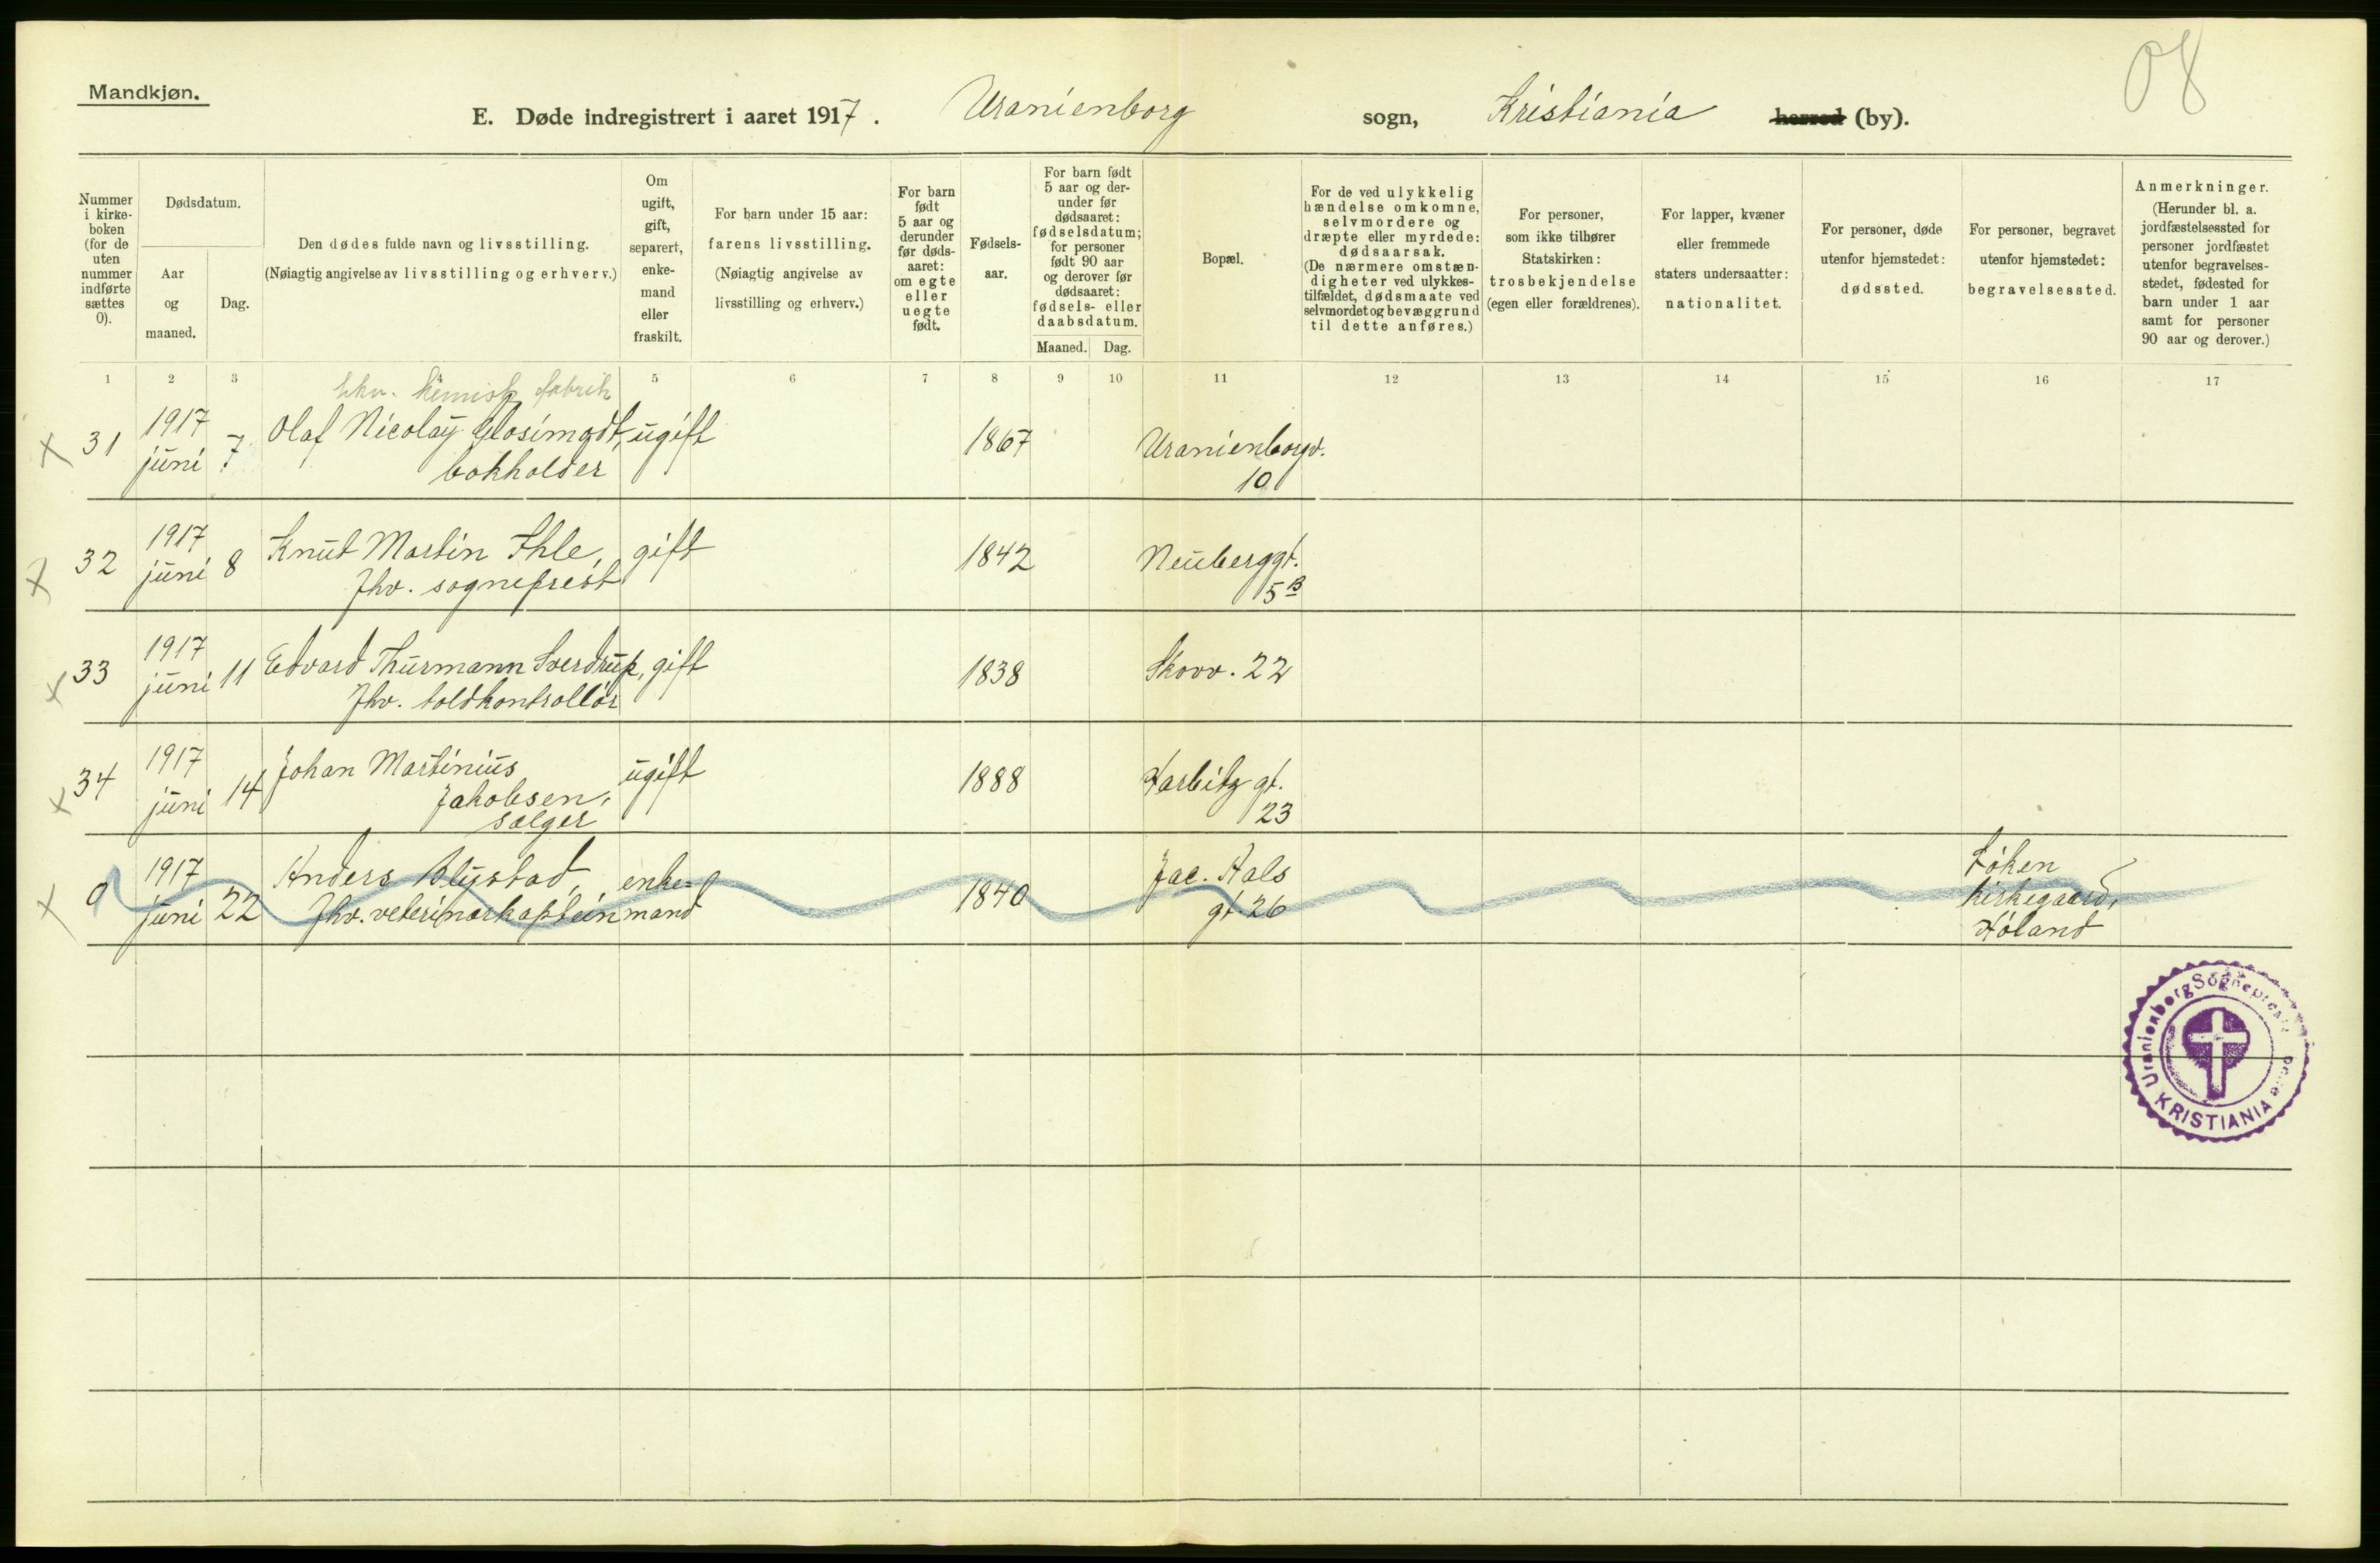 08
Mandkjøn.
E. Døde indregistrert i aaret 1917. Uranienborg sogn, Kristiania herred (by).
Nummer i kirke-boken (for de uten nummer indførte sættes 0).
Dødsdatum.
Aar og maaned.
Dag.
Den dødes fulde navn og livsstilling.
(Nøiagtig angivelse av livsstilling og erhverv.)
Om ugift, gift, separert, enke-mand eller fraskilt.
For barn under 15 aar:
farens livsstilling.
(Nøiagtig angivelse av
livsstilling og erhverv.)
For barn født 5 aar og derunder før døds-aaret: om egte eller uegte født.
Fødsels-aar.
For barn født 5 aar og der-under før dødsaaret: fødselsdatum; for personer født 90 aar og derover før dødsaaret: fødsels- eller daabsdatum.
Maaned. Dag.
Bopæl.
For de ved ulykkelig hændelse omkomne, selvmordere og dræpte eller myrdede: dødsaarsak.
(De nærmere omstæn-digheter ved ulykkes-tilfældet, dødsmaate ved selvmordet og bevæggrund til dette anføres.)
For personer, som ikke tilhører Statskirken: trosbekjendelse (egen eller forældrenes).
For lapper, kvæner eller fremmede staters undersaatter: nationalitet.
For personer, døde utenfor hjemstedet: dødssted.
For personer, begravet utenfor hjemstedet: begravelsessted.
Anmerkninger.
(Herunder bl. a. jordfæstelsessted for personer jordfæstet utenfor begravelses-stedet, fødested for barn under 1 aar samt for personer 90 aar og derover.)
1 2 3 4 5 6 7 8 9 10 11 12 13 14 15 16 17
kemisk fabrik
x 31 1917 juni 7 Olaf Nicolay ugift 1867 Uranienborgv. 10
bokholder
x 32 1917 juni 8 Knut Martin Ihle, gift 1842 Neuberggt. 5B
Fhv. sogneprest
x 33 1917 juni 11 Edvard Thurmann Sverdrup, gift 1838 Skovv. 22
Fhv. toldkontrollør
x 34 1917 juni 14 Johan Martinius ugift 1888 Harbitz gt. 23
Jakobsen,
sælger
x 0 1917 juni 22 Anders Blystad, enke=mand 1840 Jac. Aals gt. 26 Løken kirkegaard, Høland
Fhv. veterinærkaptein
Uranienborg Sogneprest
KRISTIANIA